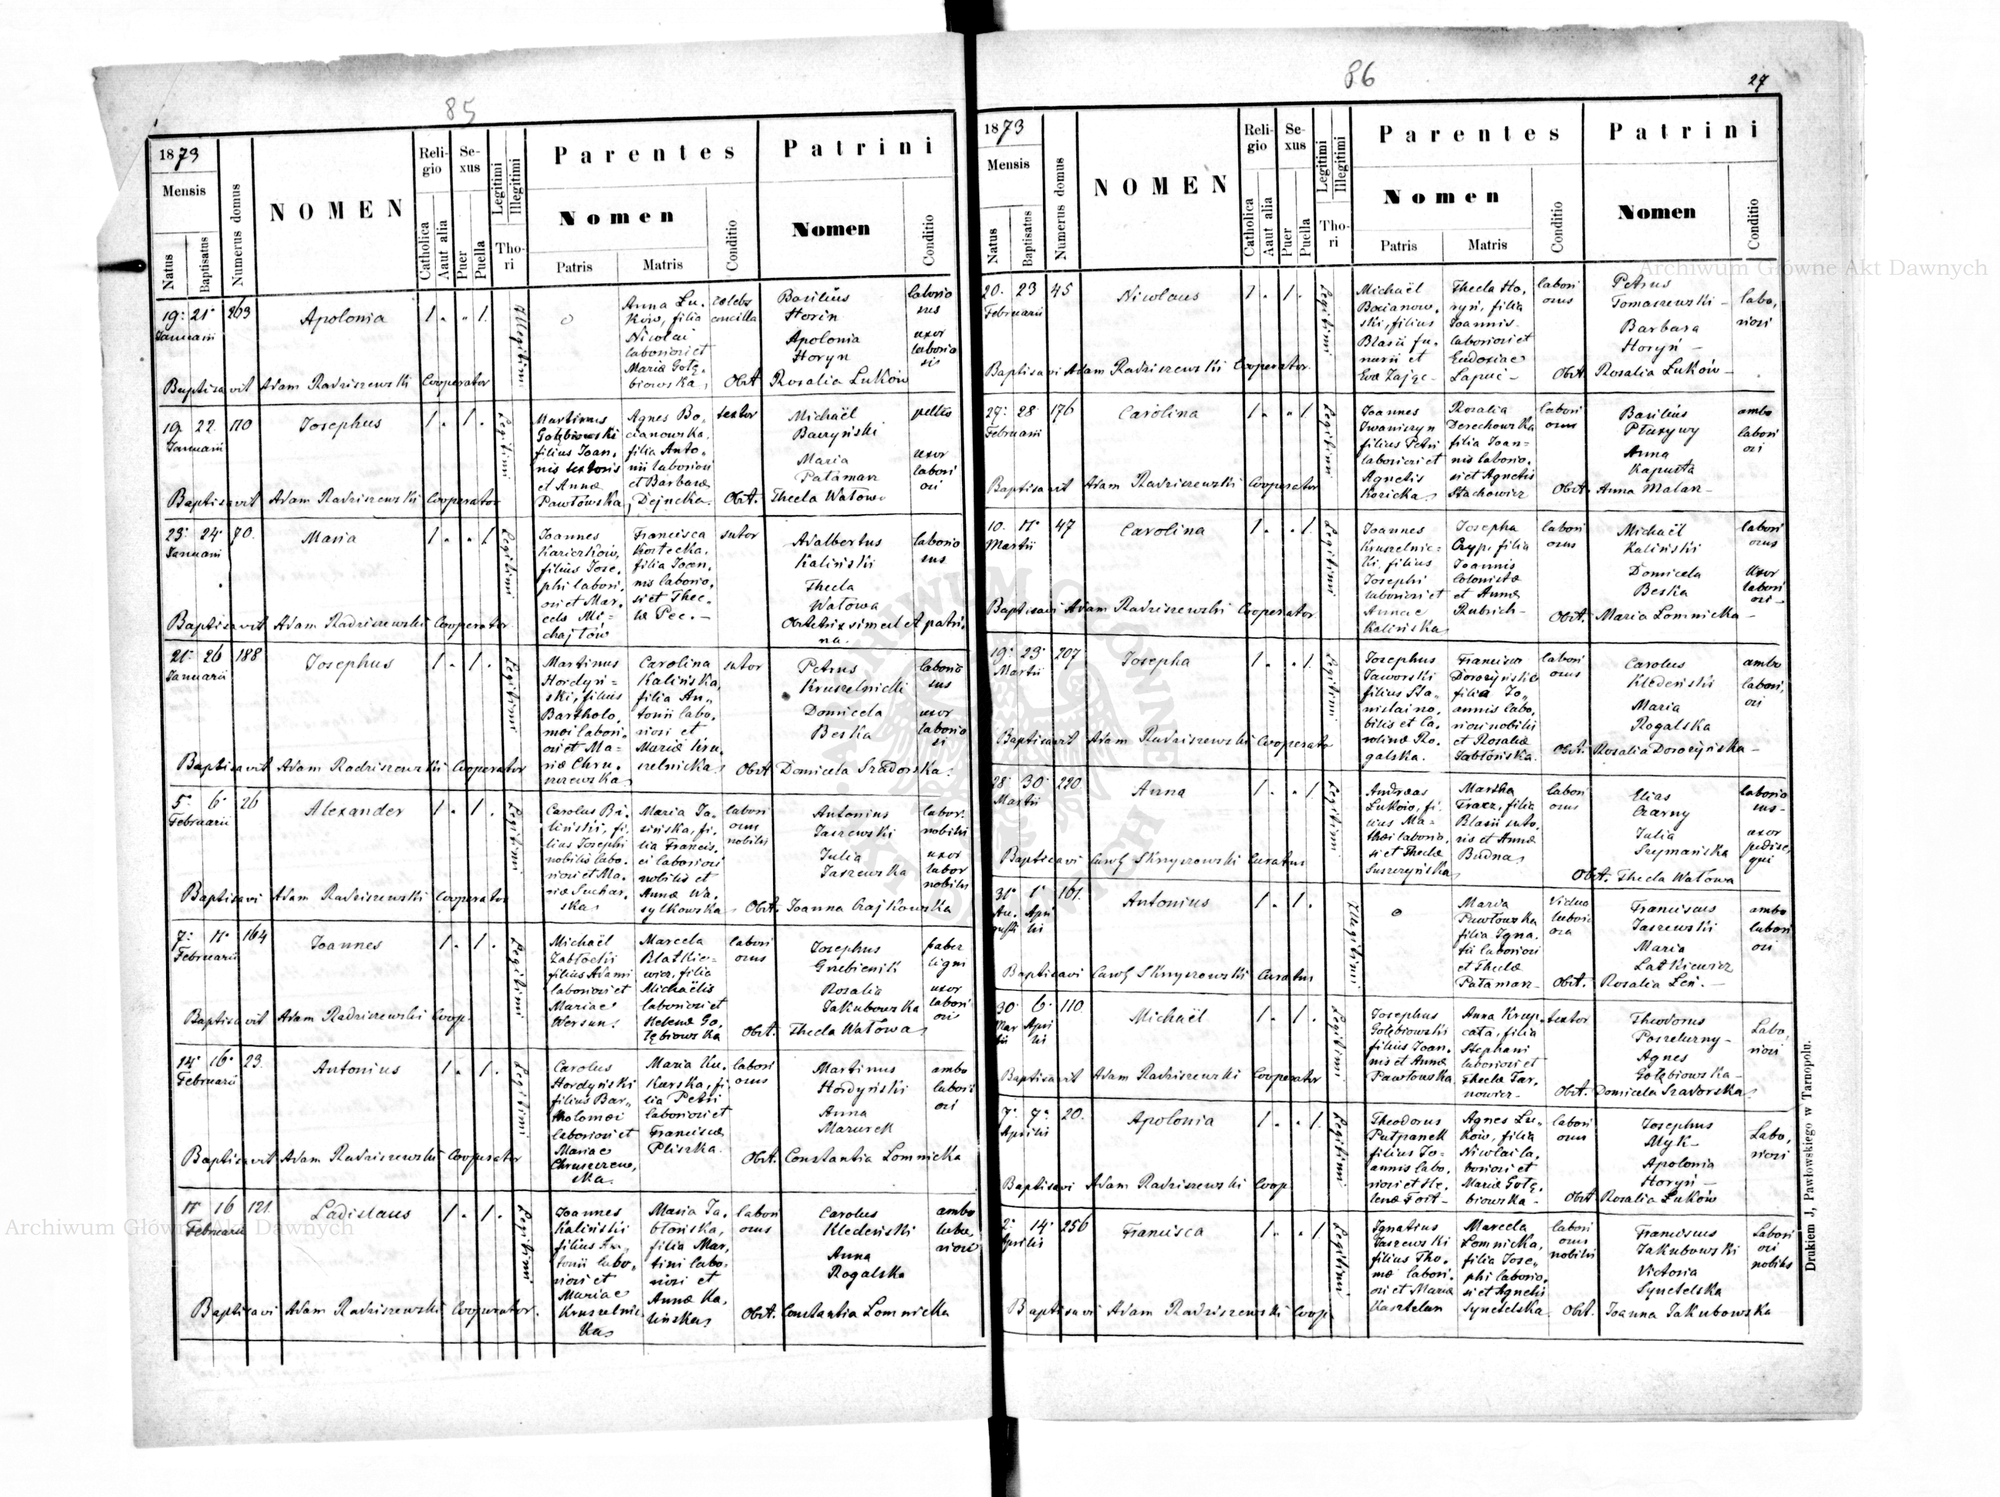 85
1873
Mensis
Natus
Baptisatus
Numerus domus
NOMEN
Religio
Catholica
Aaut alia
Sexus
Puer
Puella
Legitimi
Illegitimi
Thori
Parentes
Nomen
Patris
Matris
Conditio
Patrini
Nomen
Conditio
19. 21. 263
Januarii
Apolonia
1 . . 1.
Illegitimi
Anna Lu-
ków, filia
Nicolai
laboriosi et
Mariæ Gołę-
biowska
Basilius
Horin
Apolonia
Horyn
laborio
sus
uxor
laborio
si
Baptisavit Adam Radziszewski Cooperator
Obst. Rosalia Luków
19 22. 110
Januarii
Josephus
1 . 1 .
Legitimi
Martinus
Gołębiowski
filius Joan-
nis textoris
et Annæ
Pawłowska
Agnes Bo-
cianowska
filia Anto-
nii laboriosi
et Barbaræ
Dejneka
textor
Michaël
Baczyński
Maria
Pataman
uxor
labori
osi
Baptisavit Adam Radziszewski Cooperator
Obst. Thecla Watowa
23. 24. 70.
Januarii
Maria
1 . . 1
Legitimi
Joannes
filius Jose-
phi labori-
osi et Mar-
celæ Mi-
chajłów
Francisca
Kostecka
filia Joan-
nis laborio-
si et Thec-
læ Pec. -
sutor
Adalbertus
Kaliński
Thecla
Watowa
Obstetrix simul et patri-
na.
laborio
sus
Baptisavit Adam Radziszewski Cooperator
21. 26 188
Januarii
Josephus
1 . 1 .
Legitimi
Martinus
Hordyń-
ski, filius
Bartholo-
mei labori-
osi et Ma-
riæ Chru-
szczewska
Carolina
Kalińska,
filia An-
tonii labo-
riosi et
Mariæ Kru-
szelnicka
sutor
Petrus
Kruszelnicki
Domicela
Beska
laborio
sus
uxor
laborio
si
Baptisavit Adam Radziszewski Cooperator
Obst. Domicela Szadorska
5. 6. 26
Februarii
Alexander
1 . 1 .
Legitimi
Carolus Bi-
liński, fi-
lius Josephi
nobilis labo-
riosi et Ma-
riæ Suchar-
ska
Maria Ja-
sińska, fi-
lia Francis-
ci laboriosi
nobilis et
Annæ Wa-
sylkowska
labori
osus
nobilis
Antonius
Jaszewski
Julia
Jaszewska
labor.
nobilis
uxor
labor
nobilis
Baptisavi Adam Radziszewski Cooperator
Obst. Joanna Czajkowska
7. 11. 164
Februarii
Joannes
1 . 1 .
Legitimi
Michaël
Zabłocki
filius Adami
laboriosi et
Mariae
Wersun
Marcela
Blatkie-
wicz, filia
Michaëlis
laboriosi et
Helenæ Go-
łębiowska
labori
osus
Josephus
Grebienik
Rosalia
Jakubowska
faber
ligni
uxor
labori
osi
Baptisavit Adam Radziszewski Coop.
Obst. Thecla Watowa
14. 16. 23.
Februarii
Antonius
1 . 1 .
Legitimi
Carolus
Hordyński
filius Bar-
tholomæi
laboriosi et
Mariae
Chruszczew-
ska
Maria Ku-
karska, fi-
lia Petri
laboriosi et
Franciscæ
Pliszka.
labori
osus
Martinus
Hordyński
Anna
Mazurek
ambo
labori
osi
Baptisavit Adam Radziszewski Cooperator
Obst. Constantia Lomnicka
11 16 121.
Februarii
Ladislaus
1 . 1 .
Legitimi
Joannes
Kaliński
filius An-
tonii labo-
riosi et
Mariae
Kruszelnic-
ka
Maria Ja-
błońska,
filia Mar-
tini labo-
riosi et
Annæ Ka-
lińska
labori
osus
Carolus
Kledeński
Anna
Rogalska
ambo
labo-
riosi
Baptisavi Adam Radziszewski Cooperator.
Obst. Constantia Lomnicka
86
27
1873
Mensis
Natus
Baptisatus
Numerus domus
NOMEN
Religio
Catholica
Aaut alia
Sexus
Puer
Puella
Legitimi
Illegitimi
Thori
Parentes
Nomen
Patris
Matris
Conditio
Patrini
Nomen
Conditio
20. 23 45
Februarii
Nicolaus
1 . 1.
Legitimi
Michaël
Bocianow-
ski, filius
Blasii fu-
narii et
Evæ Zając -
Thecla Ho-
ryń, filia
Joannis
laboriosi et
Eudoxiae
Lapuć -
labori
osus
Petrus
Tomaszewski -
Barbara
Horyń -
labo-
riosi
Baptisavi Adam Radziszewski Cooperator.
Obst. Rosalia Luków -
27. 28 176
Februarii
Carolina
1 . . 1
Legitimi
Joannes
Iwaniszyn
filius Petri
laboriosi et
Agnetis
Kozicka
Rosalia
Derechowska
filia Joan-
nis laborio-
si et Agnetis
Stachowicz
labori
osus
Basilius
Anna
Kapusta
ambo
labori
osi
Baptisavit Adam Radziszewski Cooperator
Obst. Anna Malan -
10. 11. 47
Martii
Carolina
1 . . 1
Legitimi
Joannes
Kruszelnic-
ki, filius
Josephi
laboriosi et
Annae
Kalińska
Josepha
Czyp, filia
Joannis
colonistæ
et Annæ
Rubich -
labori
osus
Michaël
Kaliński
Domicela
Beska
labori
osus
Uxor
labori
osi -
Baptisavi Adam Radziszewski Cooperator
Obst. Maria Lomnicka -
19. 23. 207
Martii
Josepha
1 . . 1
Legitimi
Josephus
Jaworski
filius Sta-
nislai no-
bilis et Ca-
rolinæ Ro-
galska.
Francisca
Dorożyńska
filia Jo-
annis labo-
riosi nobilis
et Rosaliæ
Jabłońska.
labori
osus
Carolus
Kledeński
Maria
Rogalska
ambo
labori-
osi
Baptisavit Adam Radziszewski Cooperator
Obst. Rosalia Dorożyńska -
28. 30. 220
Martii
Anna
1 . . 1
Legitimi
Andreas
Luków, fi-
lius Ma-
thæi laborio-
si et Theclæ
Suszczyńska
Martha
Tracz, filia
Blasii suto-
ris et Annæ
Budna
labori
osus
Elias
Czarny
Julia
Szymańska
laborio
sus -
uxor
pedise-
qui
Baptisavi Carol Skryszowski Curatus
Obst. Thecla Watowa
31. 1. 161.
Apri
lis
Antonius
1 . 1 .
Illegitimi
Maria
Pawłowska
filia Igna-
tii laboriosi
et Theclæ
Pataman -
Vidua
laborio
sa
Franciscus
Jaszewski
Maria
Latkiewicz
ambo
labori
osi
Baptisavi Carol Skryszowski Curatus
Obst. Rosalia Leń. -
30. 6. 110.
Mar Apri
tii lis
Michaël
1 . 1 .
Legitimi
Josephus
Gołębiowski
filius Joan-
nis et Annæ
Pawłowska
Anna Krup-
cata, filia
Stephani
laboriosi et
Theclæ Tar-
nowicz -
textor
Theodorus
Agnes
Gołębiowska -
Labo-
riosi
Baptisavit Adam Radziszewski Cooperator
Obst. Domicela Szadorska
7. 9. 20.
Aprilis
Apolonia
1 . . 1.
Legitimi
Theodorus
Putpanek
filius Jo-
annis labo-
riosi et He-
lenæ Fort -
Agnes Lu-
ków, filia
Nicolai la-
boriosi et
Mariæ Gołę-
biowska -
labori
osus
Josephus
Myk -
Apolonia
Horyń -
Labo-
riosi
Baptisavi Adam Radziszewski Coop.
Obst Rosalia Luków
2. 14. 256
Aprilis
Francisca
1 . . 1
Legitimi
Ignatius
Jaszewski
filius Tho-
mæ labori-
osi et Mariæ
Kasztelan
Marcela
Lomnicka,
filia Jose-
phi laborio-
si et Agnetis
Synetelska
labori
osus
nobilis
Franciscus
Jakubowski
Victoria
Synetelska
Labori
osi
nobiles
Baptisavi Adam Radziszewski Coop.
Obst. Joanna Jakubowska
Drukiem J. Pawłowskiego w Tarnopolu.
Archiwum Główne Akt Dawnych
Archiwum Główne Akt Dawnych